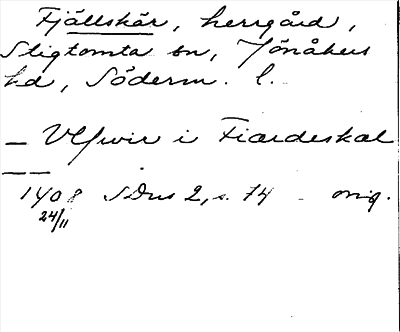 Fjällskär, herrgård,
Stigtomta sn, Jönåkers
hd, Söderm. l.
— Vlfwir i Fiærdeskal
— —
1408 SDns 2, s. 74 - orig.
24/11